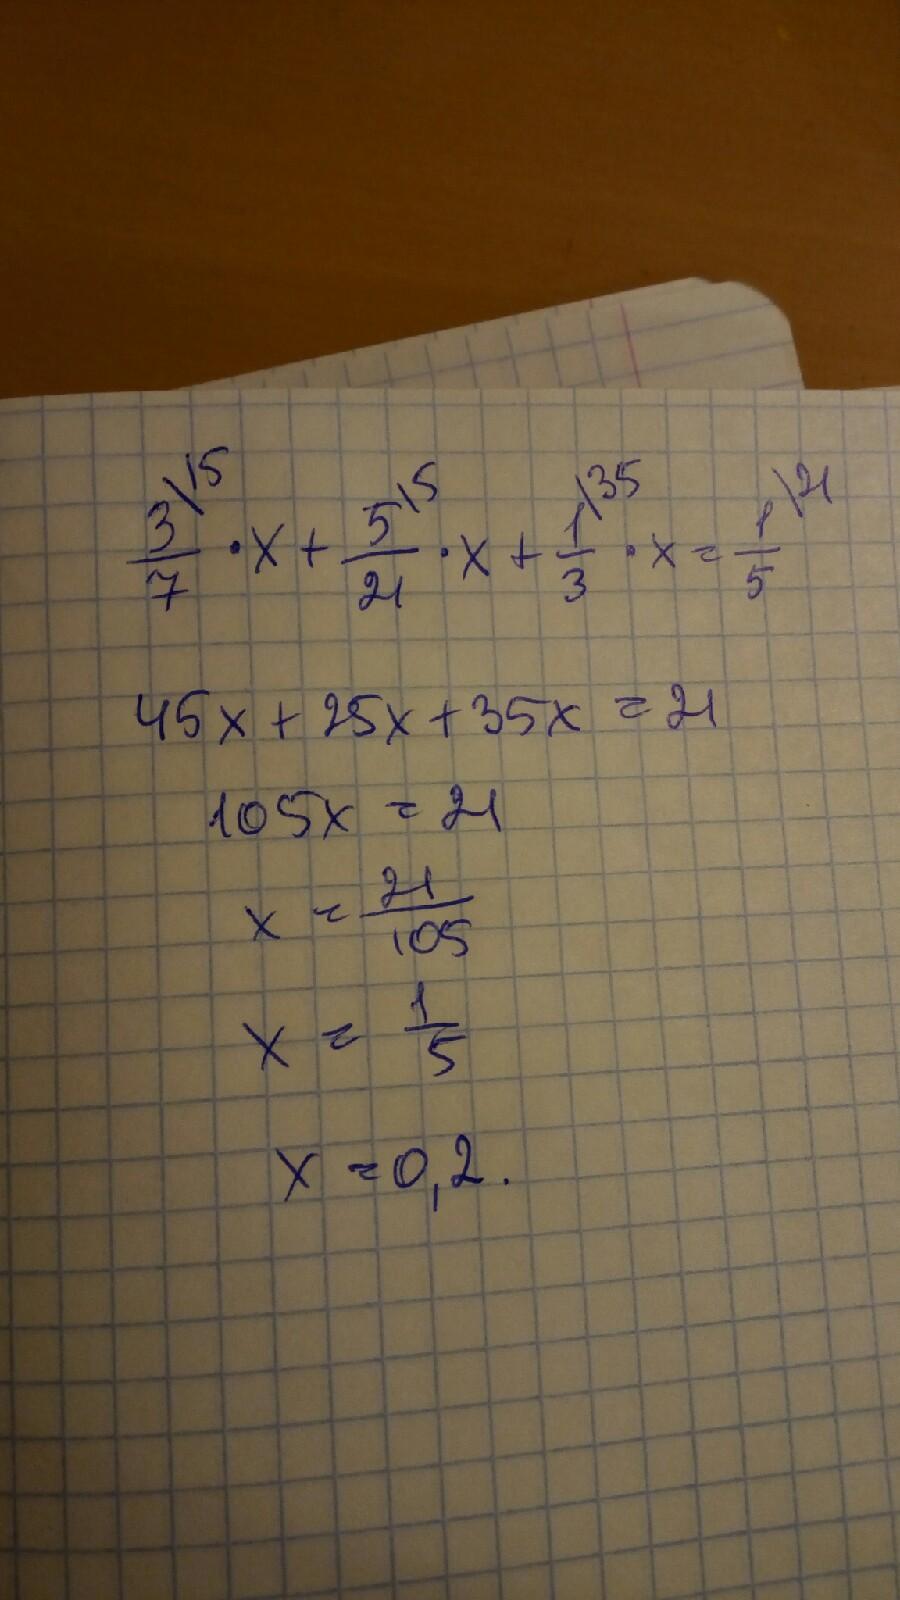 3\15/7 · x + 5\5/21 · x + 1\35/3 · x = 1\21/5
45x + 25x + 35x = 21
105x = 21
x = 21/105
x = 1/5
x = 0,2.